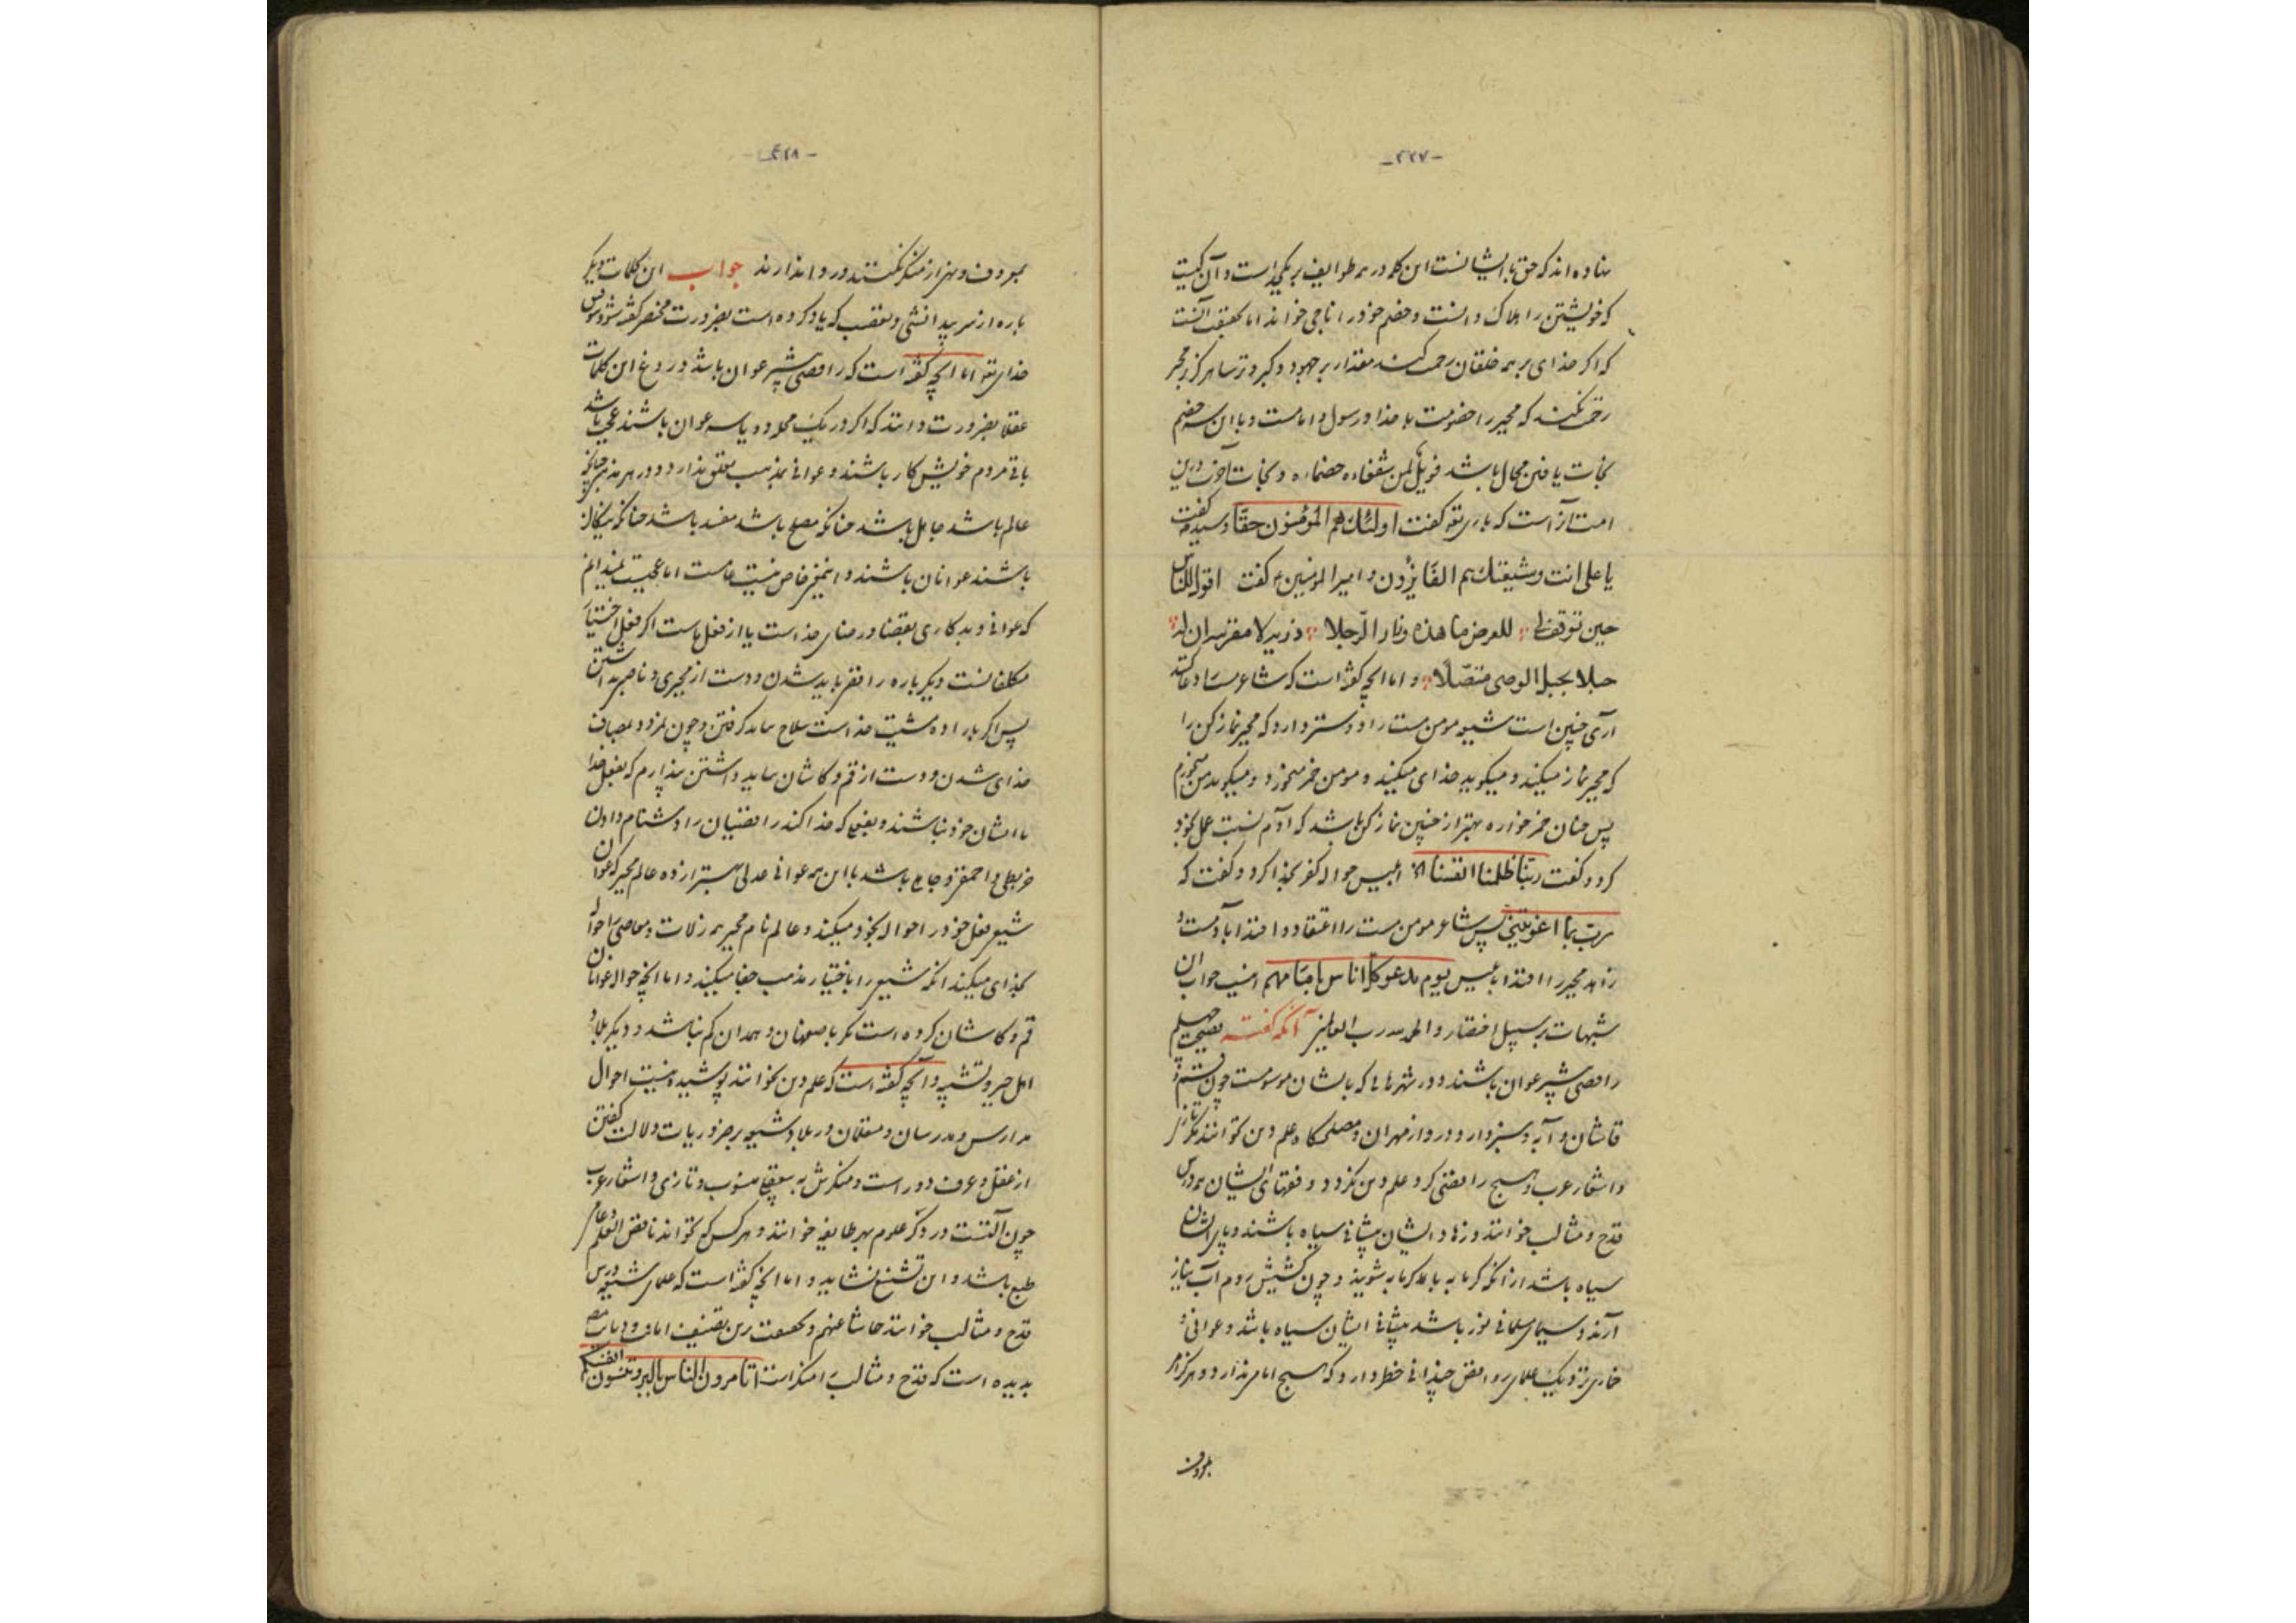 -٢٢٧-
نهاده‌اند که حق با ایشانست این کلمه در همه طوایف بر یکدیگر است و آن کیست
که خویشتن را هلاک دانست و خصم خود را ناجی خواند اما بحقیقت آنست
که اگر خدای بر همه خلقان رحمت کند مقدار بر جهود و گبر و ترسا هرگز بر مجبر
رحمت نکند که مجبر را خصومت با خدا و رسول و امامست و با این سه خصم
نجات یافتن محال باشد فویل لمن شفعاءه خصماءه و نجات آخرت درین
امت آنراست که باری تعه گفت اولئک هم المؤمنون حقّا و سید گفت
یا علی انت و شیعتک هم الفایزون و امیرالمؤمنین ع گفت اقول للنار
حین توقف للعرض هذه ذریه لا تقربیه ان له
حبلا بحبل الوصی متصّلا و اما آنچه گفته است که شاعر
آری چنین است شیعه مومن مست را دوستر دارد که مجبر نماز کن را
که مجبر نماز میکند و میگوید خدای میکند و مومن خمر میخورد و میگوید من میخورم
پس چنان خمر خواره بهتر از چنین نماز کن باشد که آدم نسبت عمل بخود
کرد و گفت ربّنا ظلمنا انفسنا ابلیس حواله کفر بخدا کرد و گفت که
ربّ بما اغویتنی پس شاعر مومن مست را اعتقاد و اقتدا بآدمست و
زاهد مجبر را اقتدا بابلیس یوم ندعو کل اناس بامامهم اینست جواب این
شبهات بر سبیل اختصار و الحمد لله رب العالمین آنگه گفته
رافضی بیشتر عوان باشند و در شهرها که بایشان موسومست چون قم و
قاشان و آبه و سبزوار و دروازه مهران و مصلحگاه علم دین نخوانند مگر
و اشعار عرب و هیچ رافضی گرد علم دین نگردد و فقهای ایشان همه درس
قدح و مثالب خوانند و زهاد ایشان پیشانی سیاه باشند و پای ایشان
سیاه باشد از آنکه گرمابه بامداد شویند و چون کشیش روم آب بناز
آرند و سیمای مسلمانی نور باشد پیشانی ایشان سیاه باشد و عوانی و
خماری نزدیک علمای روافض چندانی خطر دارد که هیچ امامی ندارد و هرگز امر
بمعروف
-٢٢٨-
بمعروف و نهی از منکر نکنند و روا ندارند جواب این کلمات دیگر
باره از سر بیدانشی و تعصب که یاد کرده است بضرورت مختصر گفته شود بتوفیق
خدای تعه اما آنچه گفته است که رافضی بیشتر عوان باشد دروغ این کلمات
عقلا بضرورت دانند که اگر در یک محله ده یا سه عوان باشند عجب باشد
باقی مردم خویش کار باشند و عوانی بمذهب تعلق ندارد و در هر مذهبی چنانکه
عالم باشد جاهل باشد چنانکه مصلح باشد مفسد باشد چنانکه نیکان
باشند عوانان باشند و این معنی خاص نیست عامست اما عجبست نمیدانم
که عوانی و بدکاری بقضا و رضای خداست یا از فعل ماست اگر فعل اختیار
مکلفانست دیگر باره رافضی باید شدن و دست از مجبری و ناصبی بداشتن
پس اگر باراده و مشیت خداست سلاح نباید گرفتن و چون نمرود بمصاف
خدای شدن و دست از قم و کاشان بباید داشتن پندارم که بفعل خدا
ما ایشان خود نباشند و بفعلی که خدا کند رافضیان را دشنام دادن
خربطی و احمقی و جاهلی باشد با این همه عوانی عدلی بهتر از ده عالم مجبر که عوان
شیعی فعل خود را حواله بخود میکند و عالم نام مجبر همه زلات و معاصی را حواله
بخدای میکند آنکه شیعی را باختیار مذهب جفا میکند و اما آنچه حواله عوانان
قم و کاشان کرده است مگر باصفهان و همدان کم نباشد و دیگر بلاد
اهل جبر و تشبیه و آنچه گفته است که علم دین نخوانند پوشیده نیست احوال
مدارس و مدرسان و متعلمان در بلاد شیعه بر ضروریات دلالت گفتن
از عقل و عرف دور است و منکرش به بی‌عقلی منسوب و تازی و اشعار عرب
چون آلتست در دگر علوم هر طایفه خوانند و هر کس که نخواند ناقص العلم و عامی
طبع باشد و این تشنیع نشاید و اما آنچه گفته است که علمای شیعه درس
قدح و مثالب خوانند حاشا عنهم و بحقیقت درین تصنیف امانت و دیانت
بدیده است که قدح و مثالب را منکر است اتامرون الناس بالبر و تنسون انفسکم